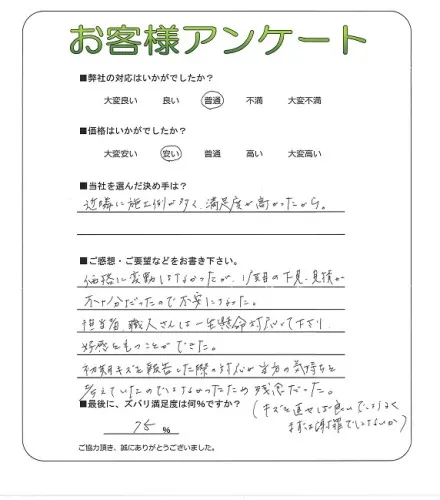 お客様アンケート
■弊社の対応はいかがでしたか？
大変良い 良い 普通 不満 大変不満
■価格はいかがでしたか？
大変安い 安い 普通 高い 大変高い
■当社を選んだ決め手は？
近隣に施工例が多く、満足度が高かったから。
■ご感想・ご要望などをお書き下さい。
価格に変動はなかったが、1回目の下見、見積が
不十分だったので不安になった。
担当者、職人さんは一生懸命対応して下さり
好感をもつことができた。
初期キズを報告した際の対応が当方の気持ちを
考えていたのではなかったため残念だった。
■最後に、ズバリ満足度は何%ですか？
(キズを直せば良いではなく
まずは謝罪ではないか)
75 %
ご協力頂き、誠にありがとうございました。